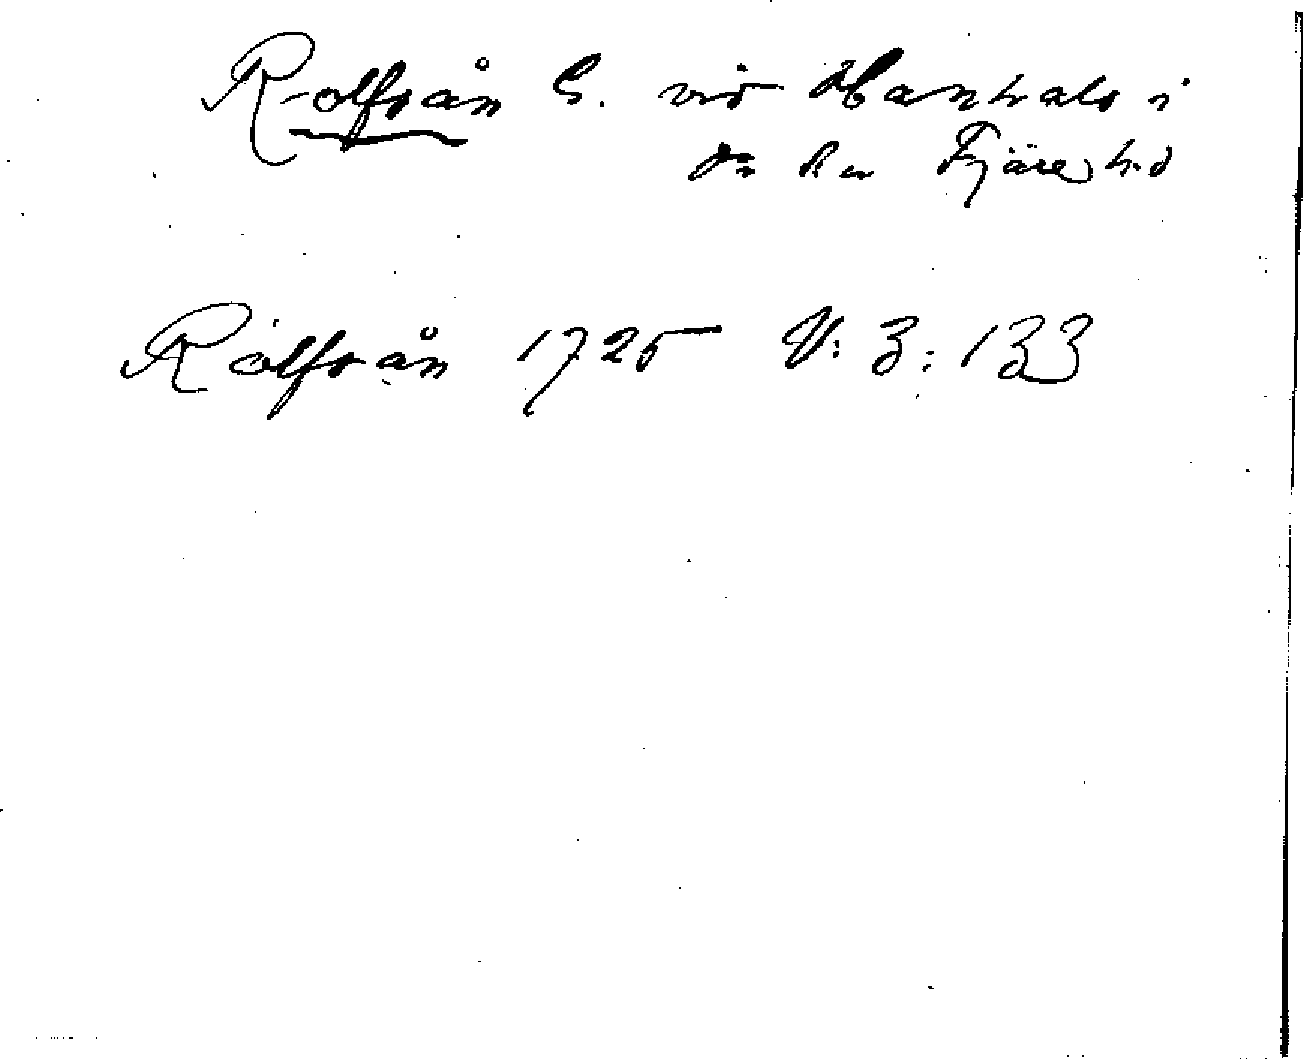 Rolfsån G. vid Hanhals i
sn Fjäre hd
Rolfsån 1725 V: 3: 133